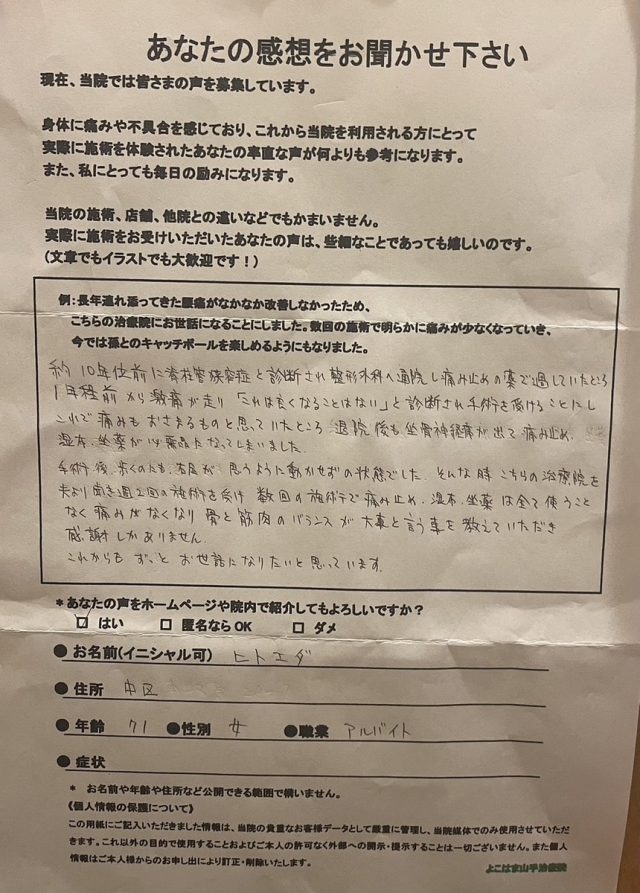 あなたの感想をお聞かせ下さい
現在、当院では皆さまの声を募集しています。
身体に痛みや不具合を感じており、これから当院を利用される方にとって
実際に施術を体験されたあなたの率直な声が何よりも参考になります。
また、私にとっても毎日の励みになります。
当院の施術、店舗、他院との違いなどでもかまいません。
実際に施術をお受けいただいたあなたの声は、些細なことであっても嬉しいのです。
(文章でもイラストでも大歓迎です！)
例：長年連れ添ってきた腰痛がなかなか改善しなかったため、
こちらの治療院にお世話になることにしました。数回の施術で明らかに痛みが少なくなっていき、
今では孫とのキャッチボールを楽しめるようにもなりました。
約10年位前に脊柱管狭窄症と診断され整形外科へ通院し痛み止めの薬で過していたところ
1年程前から激痛が走り「これは良くなることはない」と診断され手術を受けることにし
これで痛みもおさまるものと思っていたところ 退院後も坐骨神経痛が出て痛み止め、
湿布、坐薬が必需品になってしまいました。
手術後、歩くのも、右足が思うように動かせずの状態でした。そんな時こちらの治療院を
夫より聞き週2回の施術を受け 数回の施術で痛み止め、湿布、坐薬は全て使うこと
なく痛みがなくなり骨と筋肉のバランスが大事と言う事を教えていただき
感謝しかありません。
これからもずっとお世話になりたいと思っています。
＊あなたの声をホームページや院内で紹介してもよろしいですか？
☑ はい □ 匿名ならOK □ ダメ
● お名前(イニシャル可) ヒトエダ
● 住所 中区
● 年齢 71 ●性別 女 ●職業 アルバイト
● 症状
＊ お名前や年齢や住所など公開できる範囲で構いません。
《個人情報の保護について》
この用紙にご記入いただきました情報は、当院の貴重なお客様データとして厳重に管理し、当院媒体でのみ使用させていただ
きます。これ以外の目的で使用することおよびご本人の許可なく外部への開示・提示することは一切ございません。また個人
情報はご本人様からのお申し出により訂正・削除いたします。
よこはま山手治療院